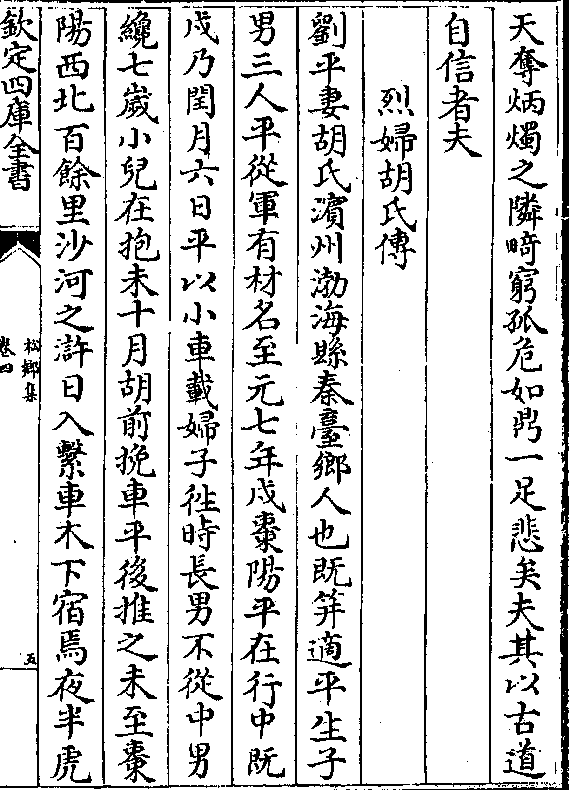 天奪炳燭之隣畸窮孤危如鼎一足悲矣夫其以古道
自信者夫
烈婦胡氏傳
劉平妻胡氏濱州渤海縣秦臺鄉人也既筓適平生子
男三人平從軍有材名至元七年戍棗陽平在行中既
戍乃閏月六日平以小車載婦子徃時長男不從中男
纔七歲小兒在抱未十月胡前挽車平後推之未至棗
陽西北百餘里沙河之滸日入繫車木下宿焉夜半虎
欽定四庫全書
松鄉集
卷四
五